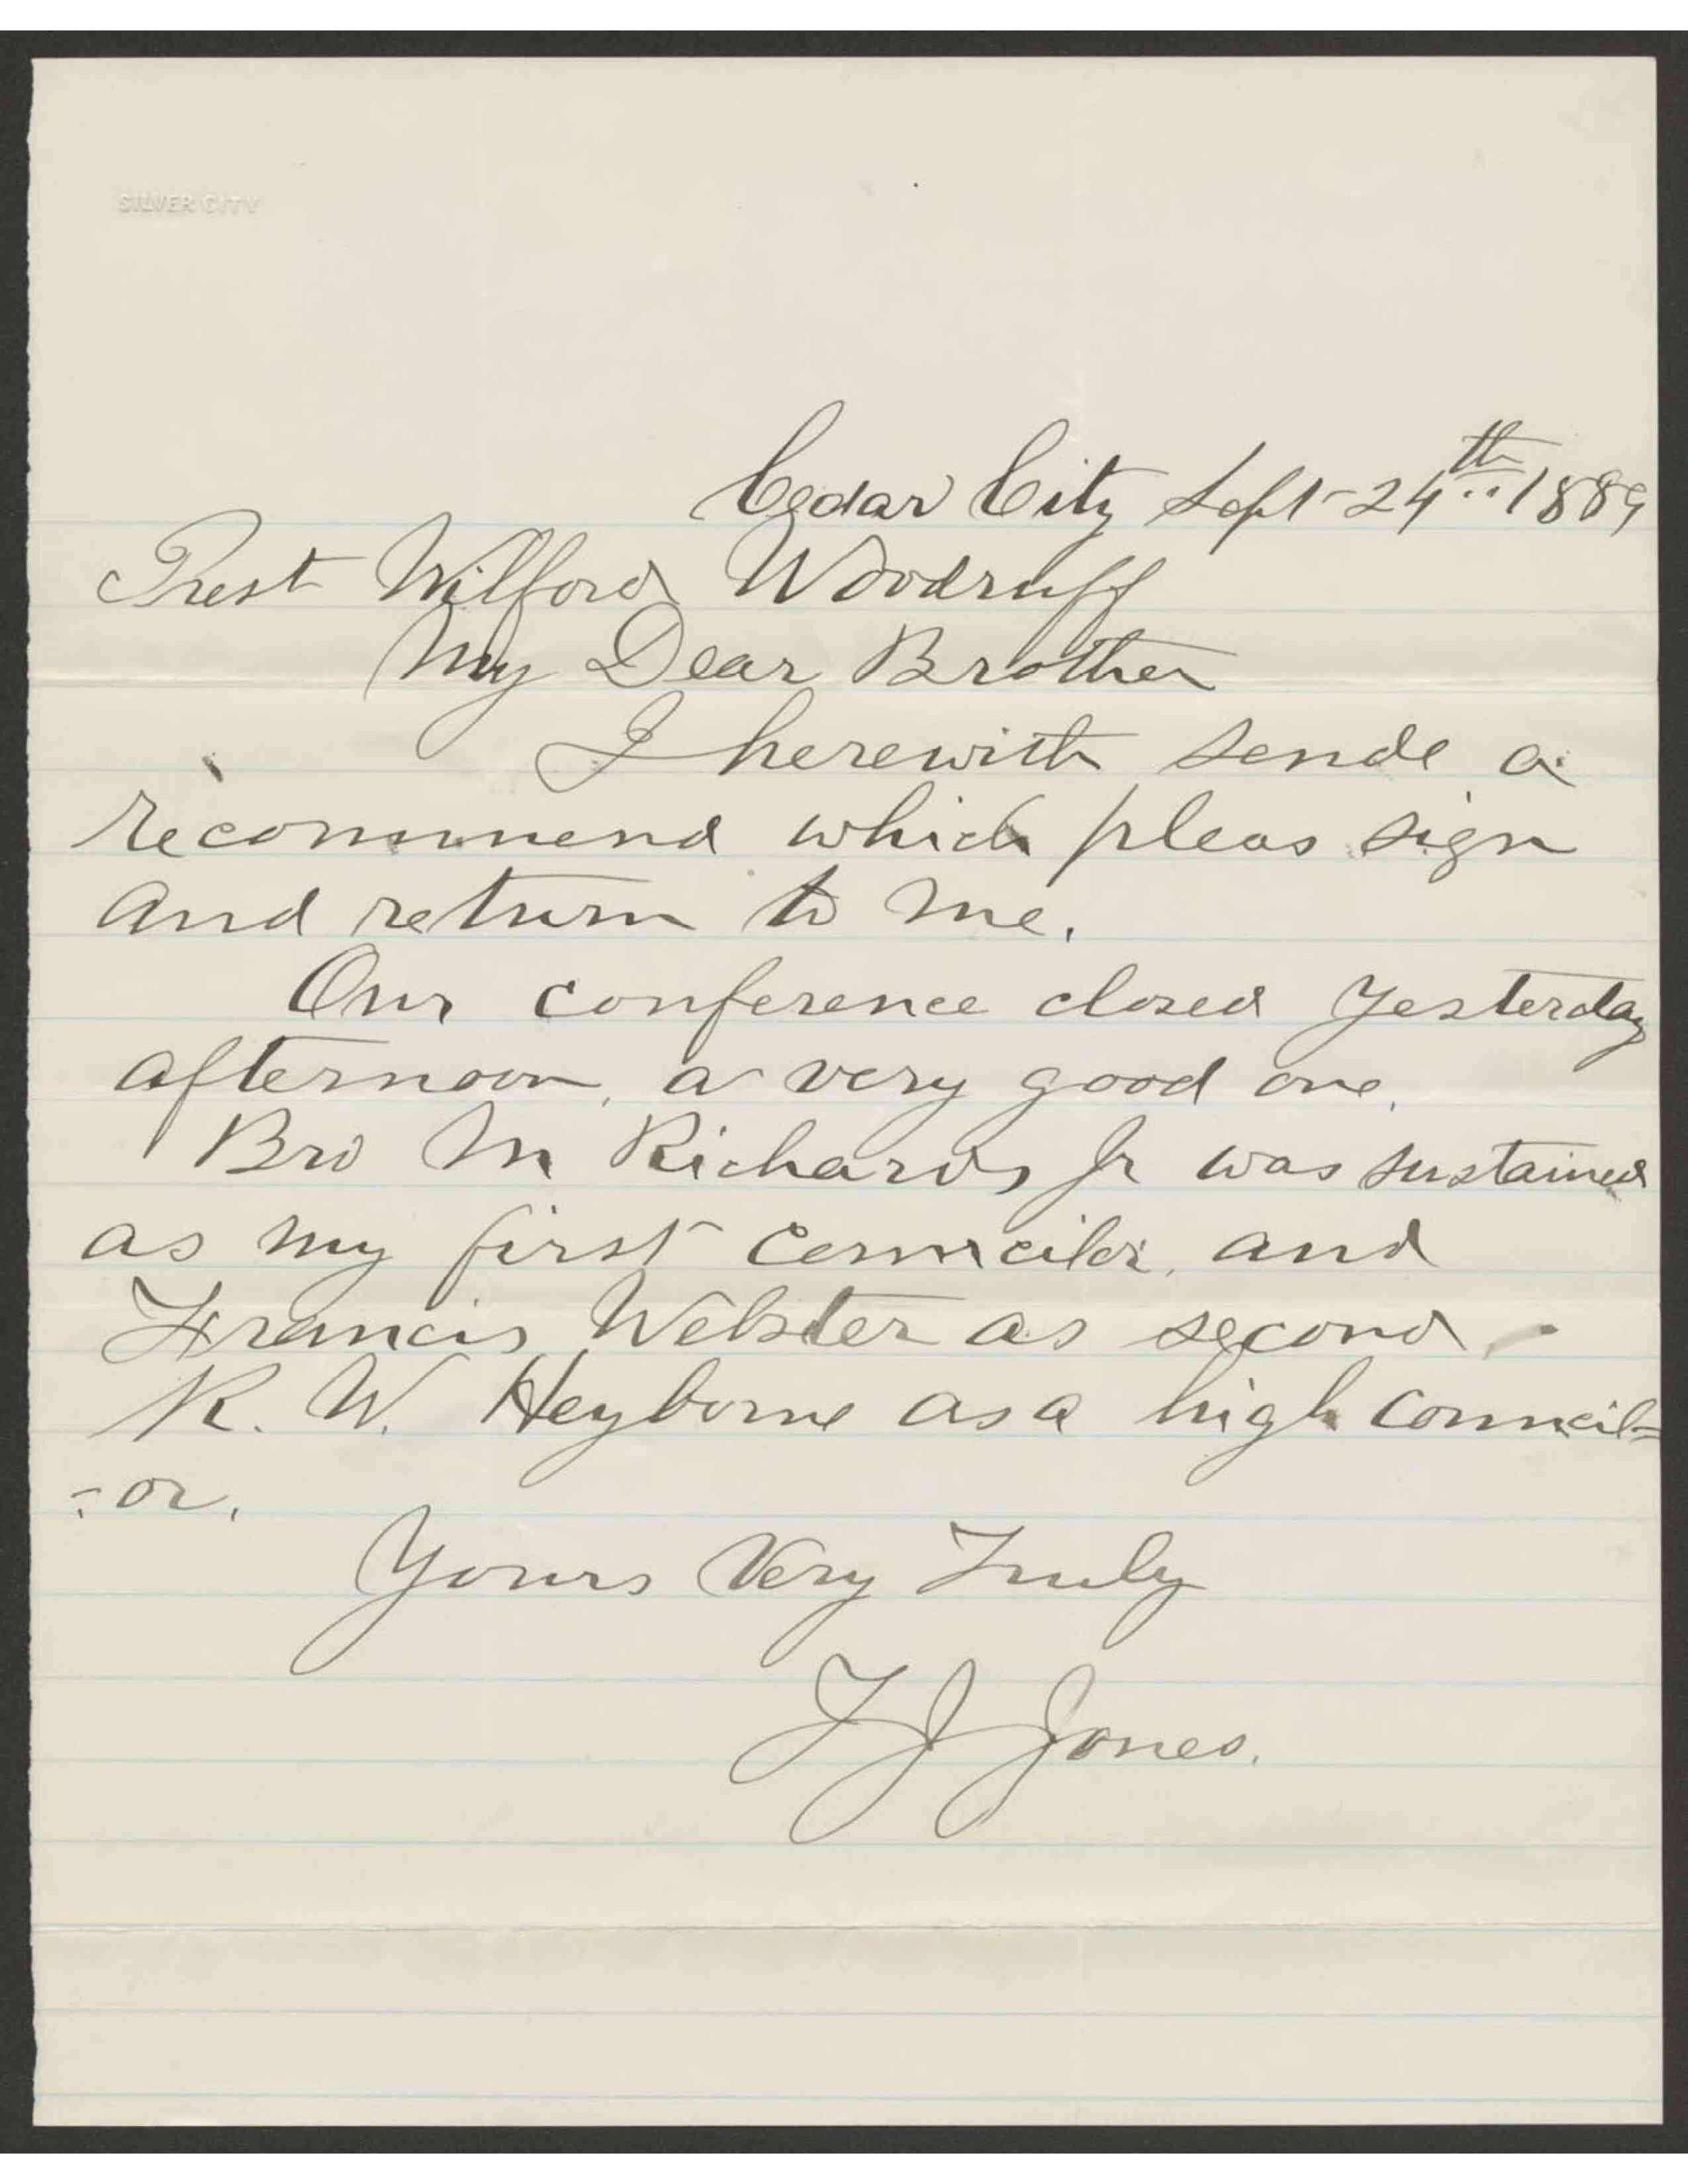 SILVER CITY
Cedar City Sept 24th 1889
Prest Wilford Woodruff
My Dear Brother
I herewith sende a
recommend which pleas sign
and return to me.
Our conference closed yesterday
afternoon, a very good one.
Bro M Richards Jr was sustained
as my first Councilor, and
Francis Webster as second.
R. W. Heyborne as a high Council=
=or.
Yours Very Truly
T J Jones.